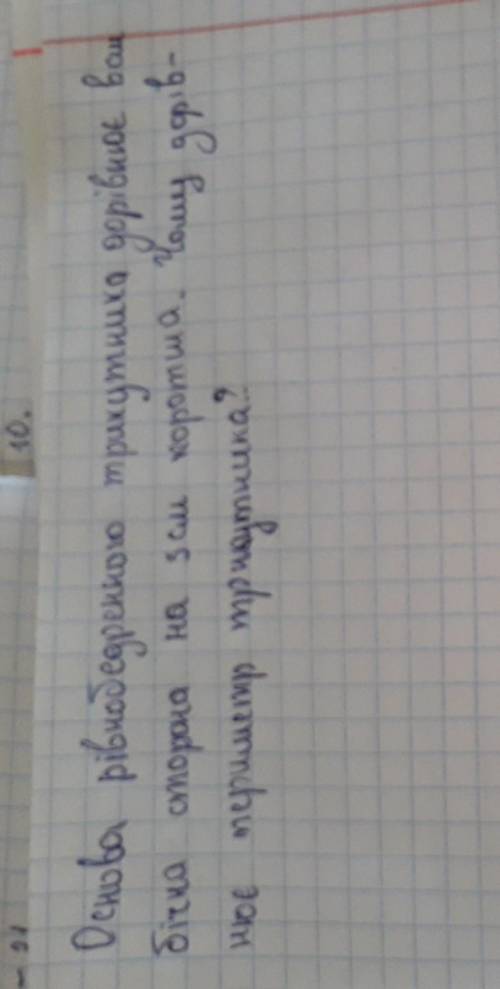 10.
Основа рівнобедренного трикутника дорівнює 8см
бічна сторона на 3см коротша. Чому дорів-
нює периметр трикутника?